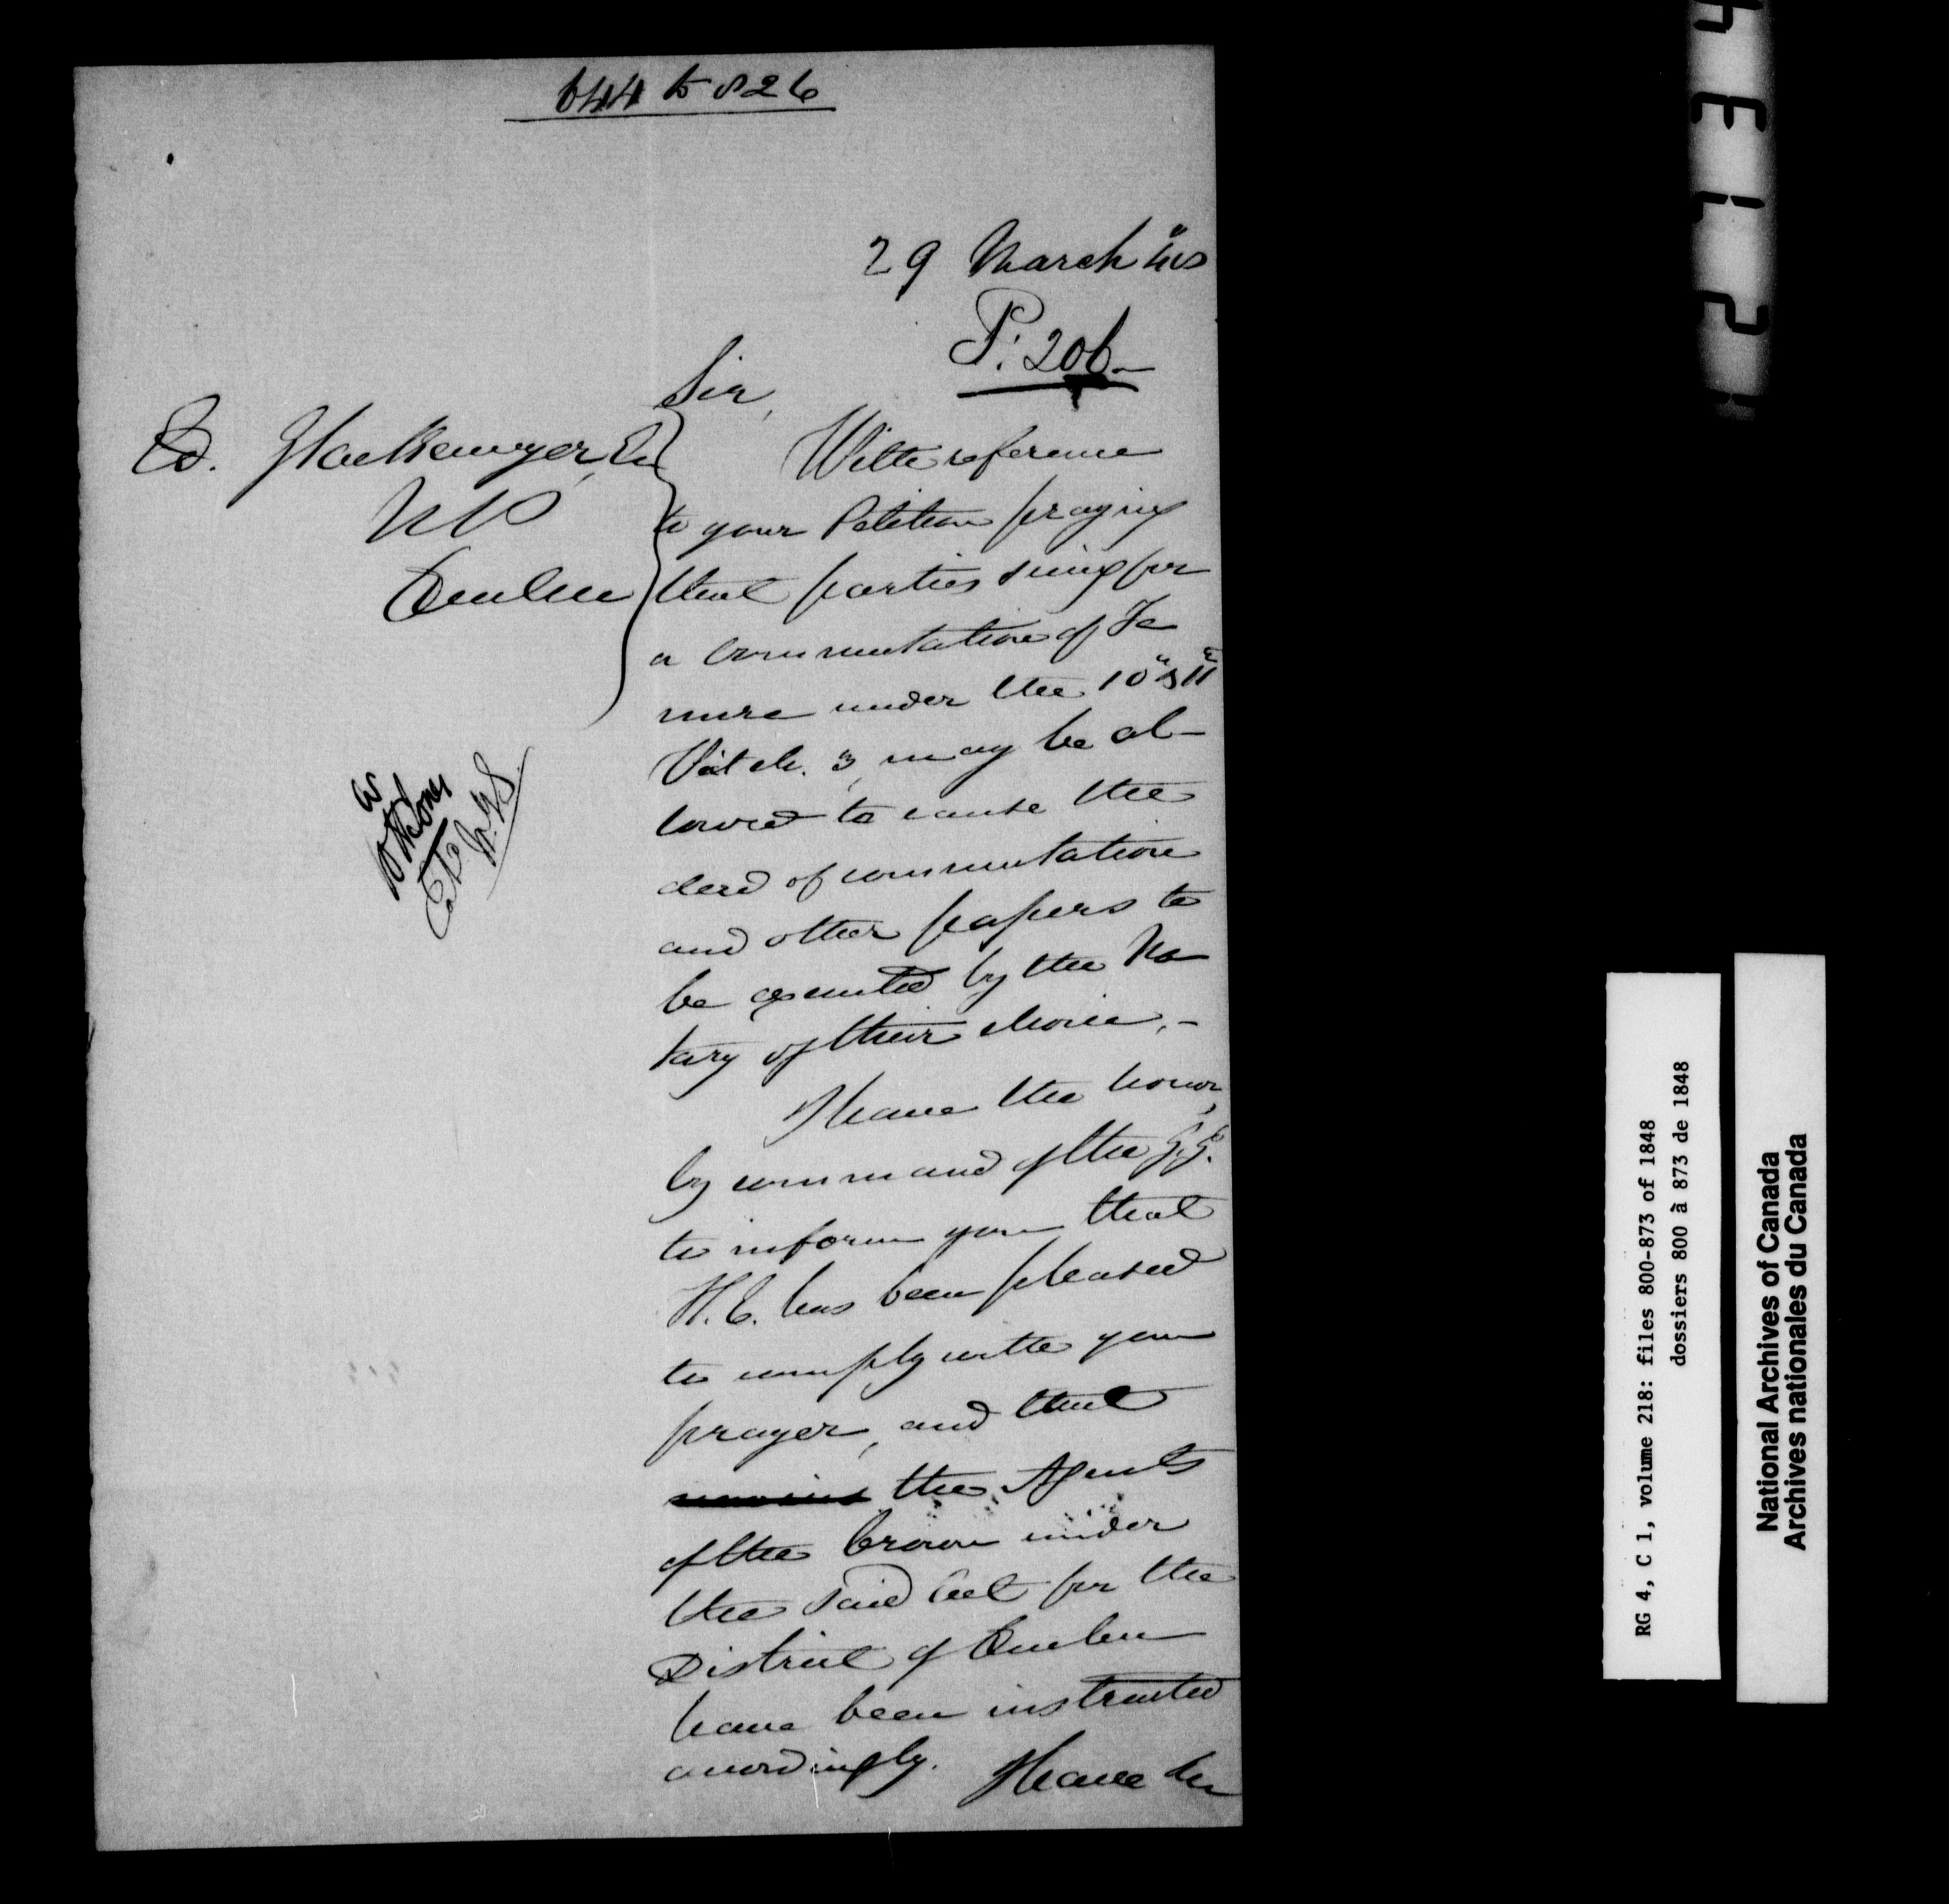 644 to 826
29 March 48
P: 206-
Sir,
Ed. Glackemeyer, Esq
N P
Quebec
With reference
to your Petition praying
that parties suing for
a commutation of Te
nure under the 10 & 11
Vict ch. 3, may be al-
lowed to cause the
deed of commutation
and other papers to
be executed by the No
tary of their choice. -
I have the honor,
by command of the G. G.
to inform you that
H. E. has been pleased
to comply with your
prayer, and that
the Agents
of the Crown under
the said Act for the
District of Quebec
have been instructed
accordingly. I have &c
RG 4, C 1, volume 218: files 800-873 of 1848
dossiers 800 à 873 de 1848
National Archives of Canada
Archives nationales du Canada